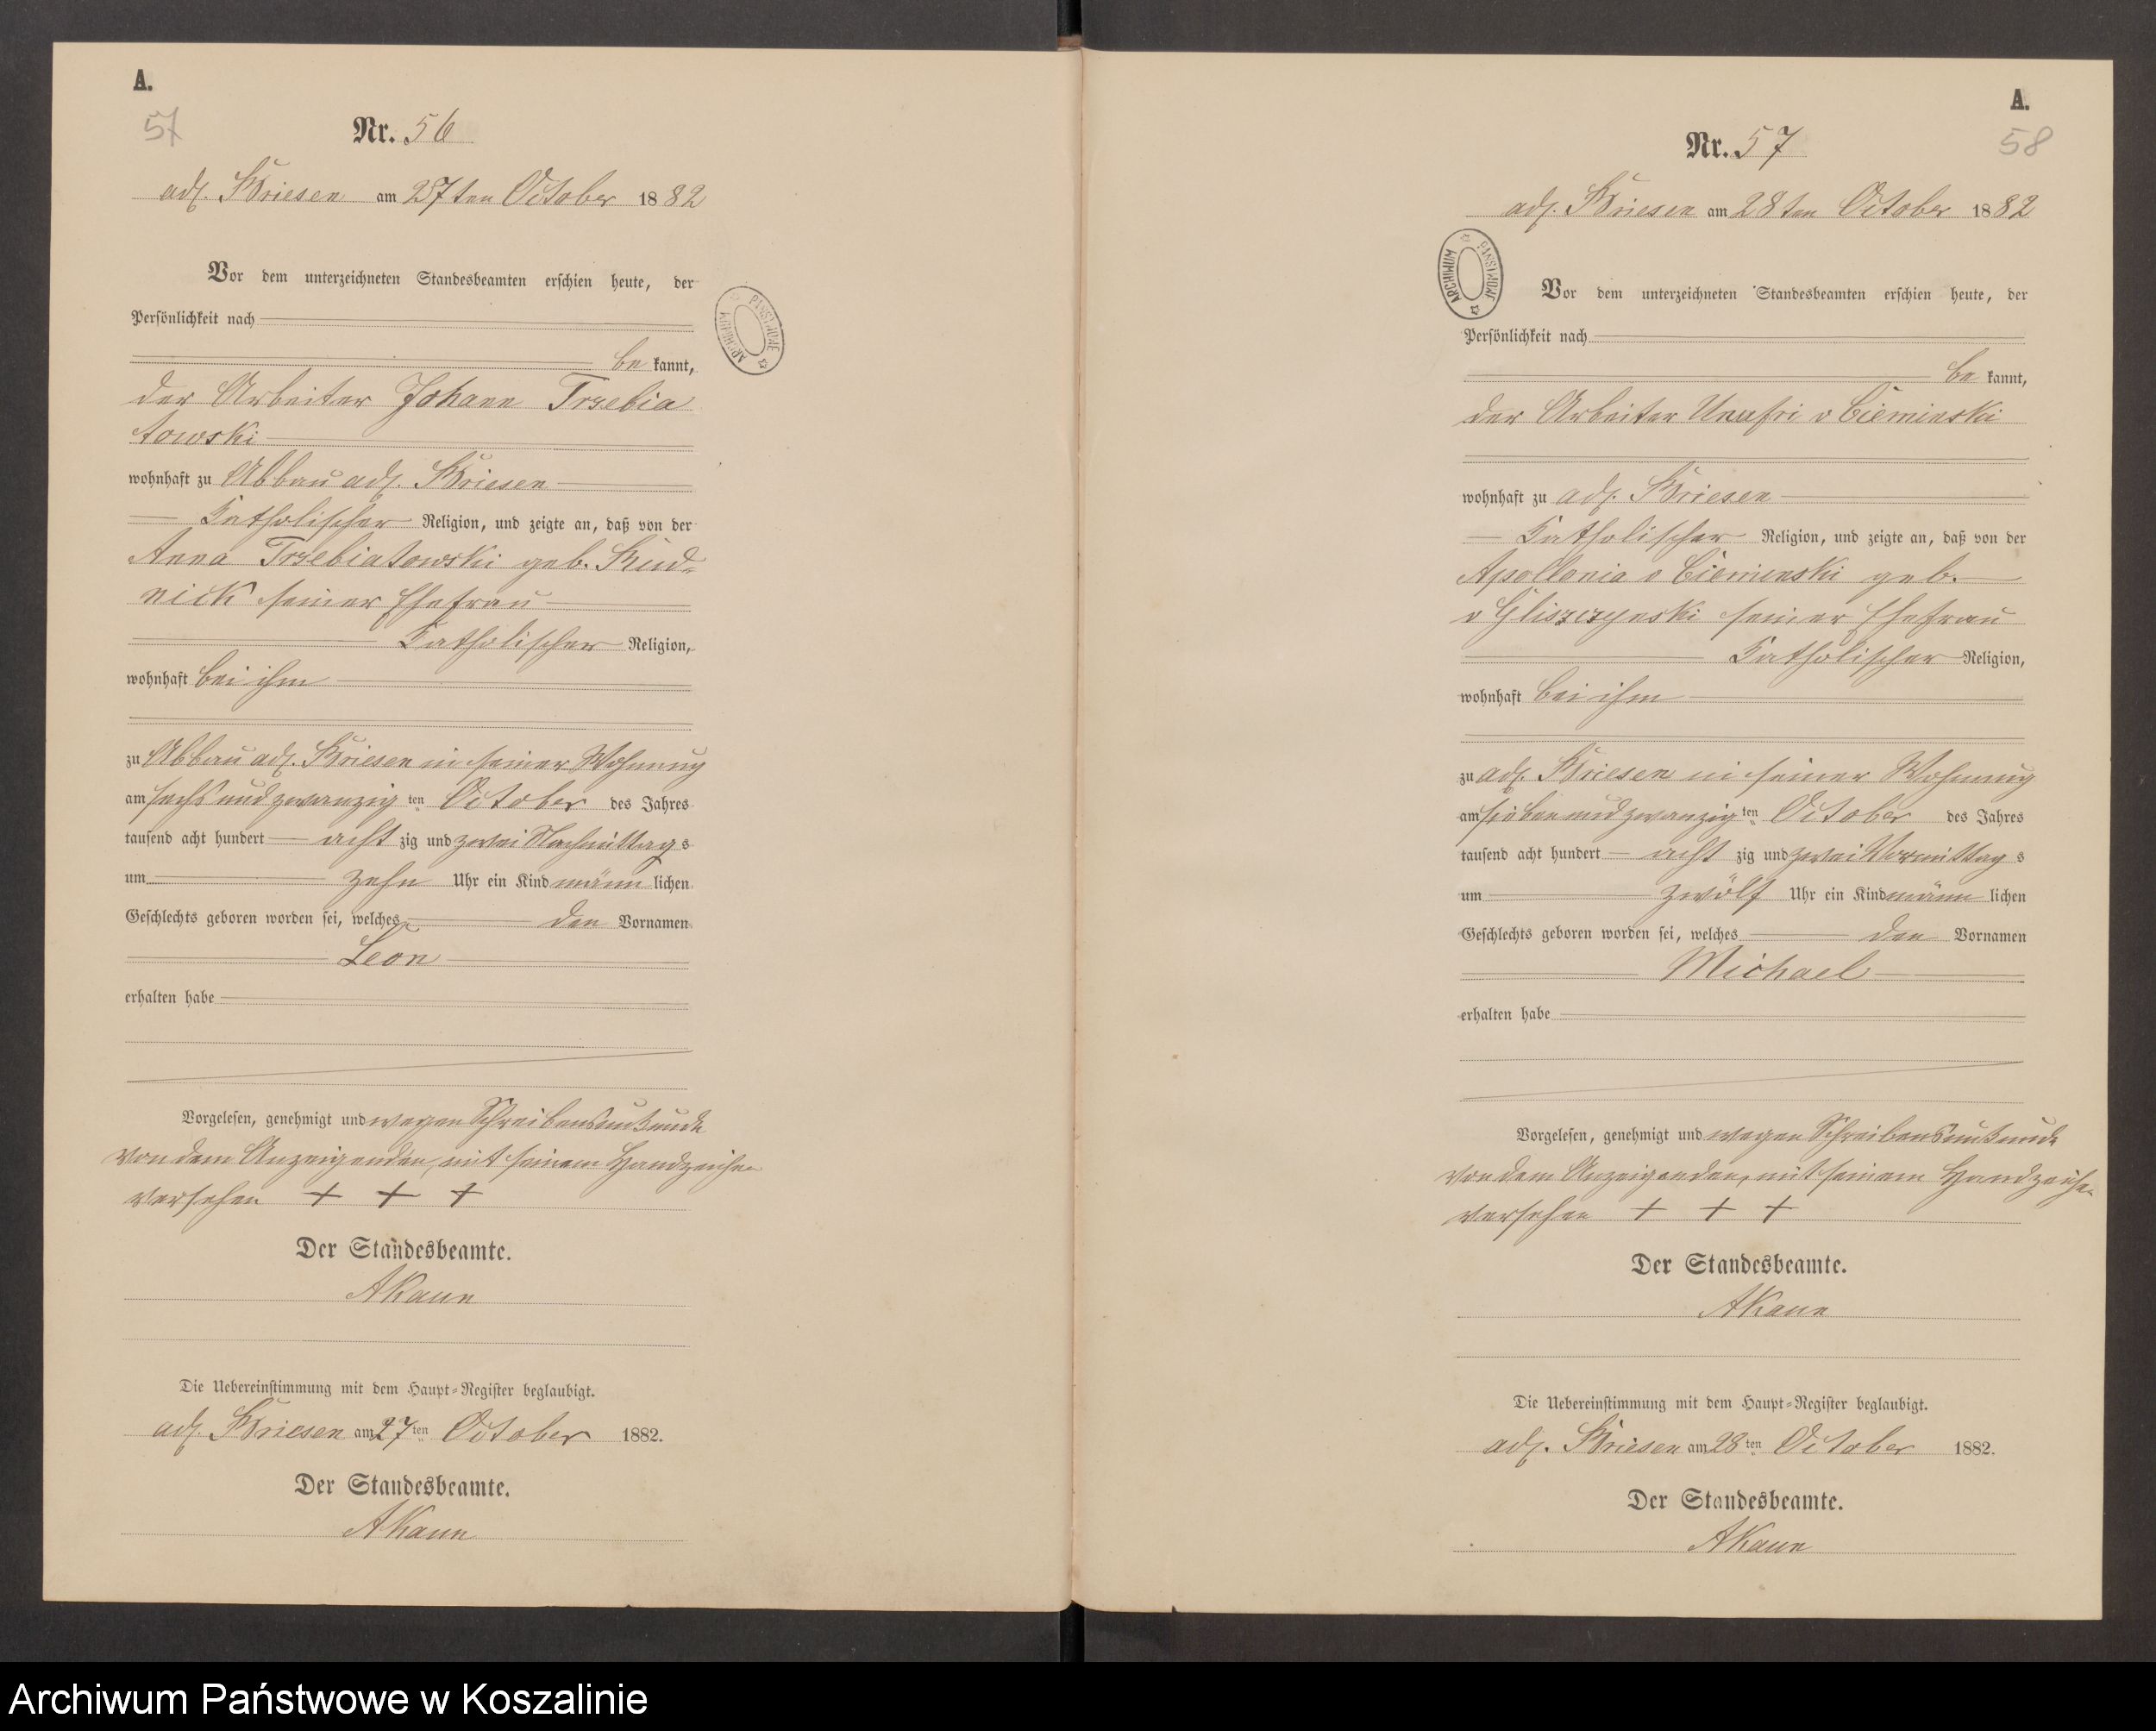 A.
57
Nr. 56
adl. Briesen am 27ten October 1882
Vor dem unterzeichneten Standesbeamten erschien heute, der
Persönlichkeit nach
be kannt,
der Arbeiter Johann Trzebia
towski
wohnhaft zu Abbau adl. Briesen
Katholischer Religion, und zeigte an, daß von der
Anna Trzebiatowski geb. Rud-
nick seiner Ehefrau
Katholischer Religion,
wohnhaft bei ihm
zu Abbau adl. Briesen in seiner Wohnung
am sechs und zwanzig ten October des Jahres
tausend acht hundert acht zig und zwei Nachmittags
um zehn Uhr ein Kind männ lichen
Geschlechts geboren worden sei, welches den Vornamen
Leon
erhalten habe
Vorgelesen, genehmigt und wegen Schreibensunkunde
von dem Anzeigenden, mit seinem Handzeichen
versehen + + +
Der Standesbeamte.
AKaun
Die Uebereinstimmung mit dem Haupt-Register beglaubigt.
adl. Briesen am 27ten October 1882.
Der Standesbeamte.
AKaun
ARCHIWUM PAŃSTWOWE
A.
58
Nr. 57
adl. Briesen am 28ten October 1882
ARCHIWUM PAŃSTWOWE
Vor dem unterzeichneten Standesbeamten erschien heute, der
Persönlichkeit nach
be kannt,
der Arbeiter v Cieminski
wohnhaft zu adl. Briesen
Katholischer Religion, und zeigte an, daß von der
Apollonia v Cieminski geb.
v Gliszczynski seiner Ehefrau
Katholischer Religion,
wohnhaft bei ihm
zu adl. Briesen in seiner Wohnung
am sieben und zwanzig ten October des Jahres
tausend acht hundert acht zig und zwei Vormittag s
um zwölf Uhr ein Kind männ lichen
Geschlechts geboren worden sei, welches den Vornamen
Michael
erhalten habe
Vorgelesen, genehmigt und wegen Schreibensunkunde
von dem Anzeigenden, mit seinem Handzeichen
versehen + + +
Der Standesbeamte.
AKaun
Die Uebereinstimmung mit dem Haupt-Register beglaubigt.
adl. Briesen am 28ten October 1882.
Der Standesbeamte.
AKaun
Archiwum Państwowe w Koszalinie